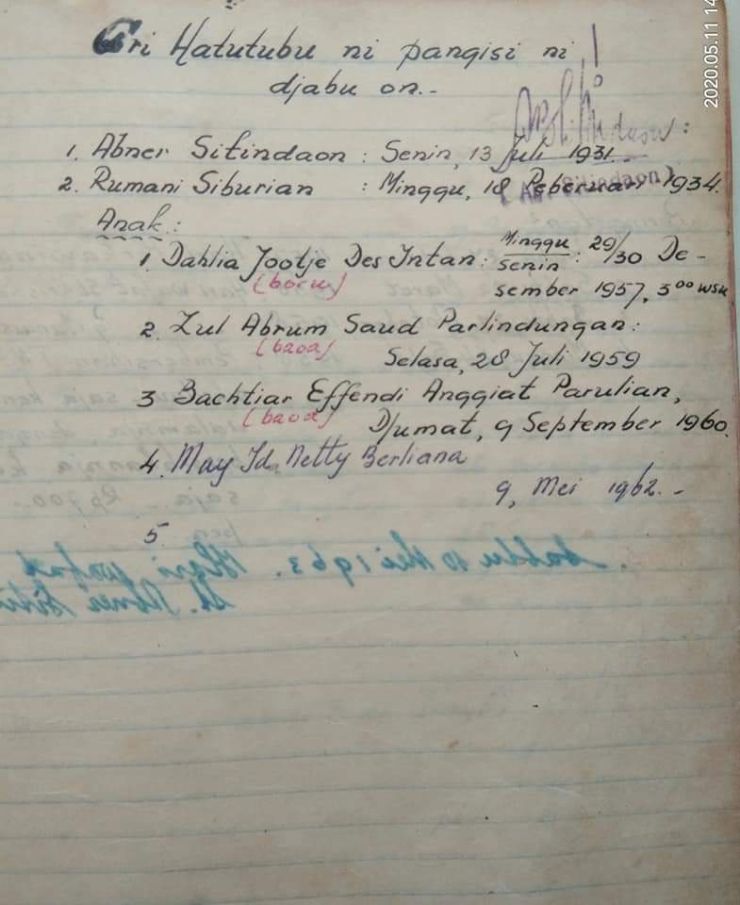 Ari Hatutubu ni pangisi ni
djabu on.-
1. Abner Sitindaon : Senin, 13 Juli 1931.
2. Rumani Siburian : Minggu, 18 Pebruari 1934.
(Abn. Sitindaon)
Anak :
1. Dahlia Jootje Des Intan : Minggu/Senin : 29/30 De-
(boru)
sember 1957, 3⁰⁰ WSU
2. Zul Abrum Saud Parlindungan :
(baoa)
Selasa, 28 Juli 1959
3 Bachtiar Effendi Anggiat Parulian,
(baoa)
Djumat, 9 September 1960.
4. May Id. Netty Berliana
9, Mei 1962.-
5
2020.05.11 14